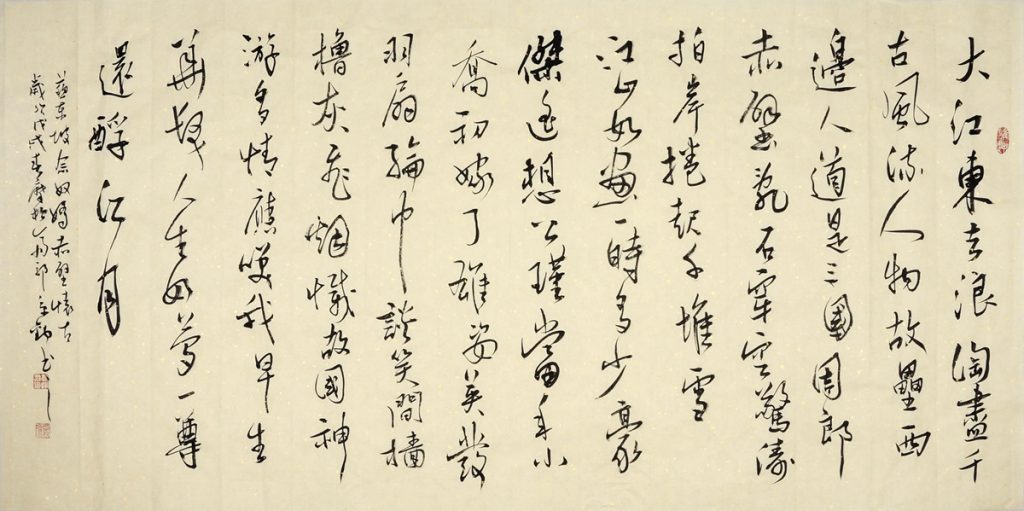 大江東去浪淘盡千
古風流人物故壘西
邊人道是三國周郎
赤壁亂石穿空驚濤
拍岸捲起千堆雪
江山如畫一時多少豪
傑遙想公瑾當年小
喬初嫁了雄姿英發
羽扇綸巾談笑間檣
櫓灰飛烟滅故國神
游多情應笑我早生
華髮人生如夢一尊
還酹江月
蘇東坡念奴嬌赤壁懷古
歲次戊戌春書